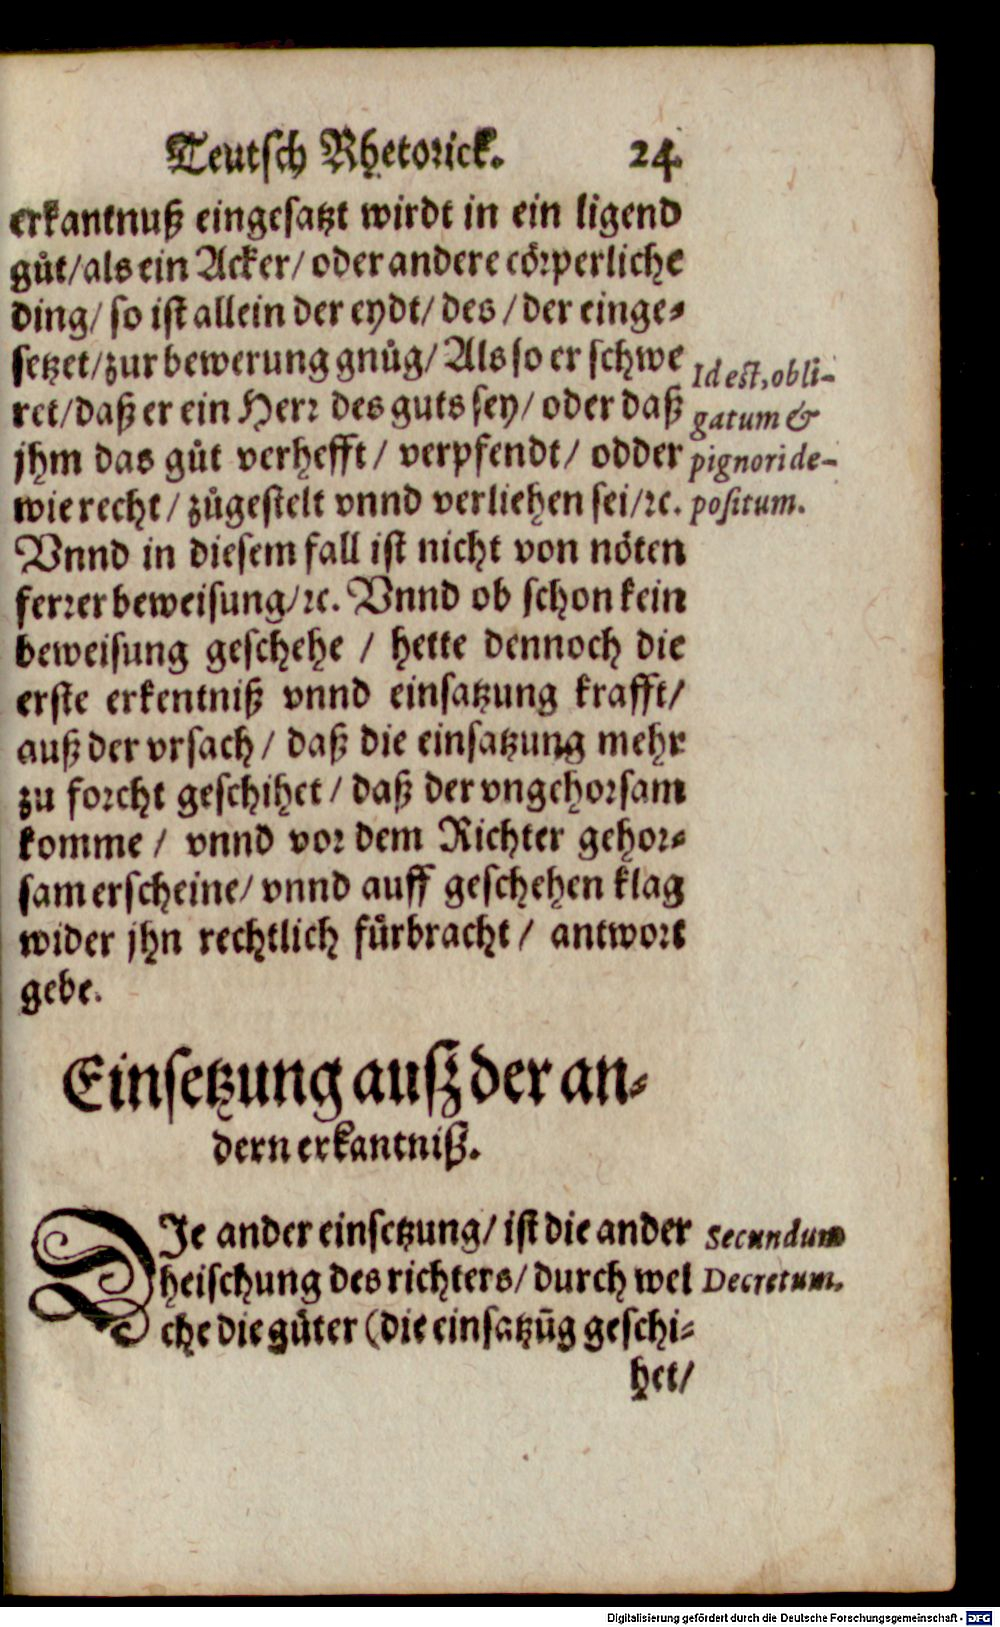 Teutsch Rhetorick. 24.
erkantnuß eingesatzt wirdt in ein ligend
guͦt/als ein Acker/ oder andere coͤrperliche
ding/ so ist allein der eydt/ des / der einge⸗
setzet/zur bewerung gnuͦg/ Als so er schwe
ret/daß er ein Herr des guts sey/ oder daß
jhm das guͦt verhefft/ verpfendt/ odder
wie recht/ zuͦgestelt vnnd verliehen sei/ꝛc.
Id est, obli-
gatum &
pignori de-
positum.
Vnnd in diesem fall ist nicht von noͤten
ferrer beweisung/ꝛc. Vnnd ob schon kein
beweisung geschehe / hette dennoch die
erste erkentniß vnnd einsatzung krafft/
auß der vrsach / daß die einsatzung mehr
zu forcht geschihet / daß der vngehorsam
komme / vnnd vor dem Richter gehor⸗
sam erscheine/ vnnd auff geschehen klag
wider jhn rechtlich fuͤrbracht / antwort
gebe.
Einsetzung ausz der an⸗
dern erkantniß.
DIe ander einsetzung/ ist die ander
heischung des richters/ durch wel
che die guͤter (die einsatzūg geschi⸗
Secundum
Decretum.
het/
Digitalisierung gefördert durch die Deutsche Forschungsgemeinschaft - DFG